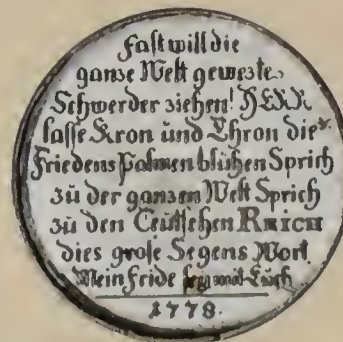 Fast will die
ganze Welt gewezte
Schwerder ziehen! HERR
lasse Kron und Thron die
Friedens Palmen blühen Sprich
zü der ganzen Welt Sprich
zü den Teütschen REICH
dies große Segens Wort
Mein Fride seÿ mit Eüch
1778.